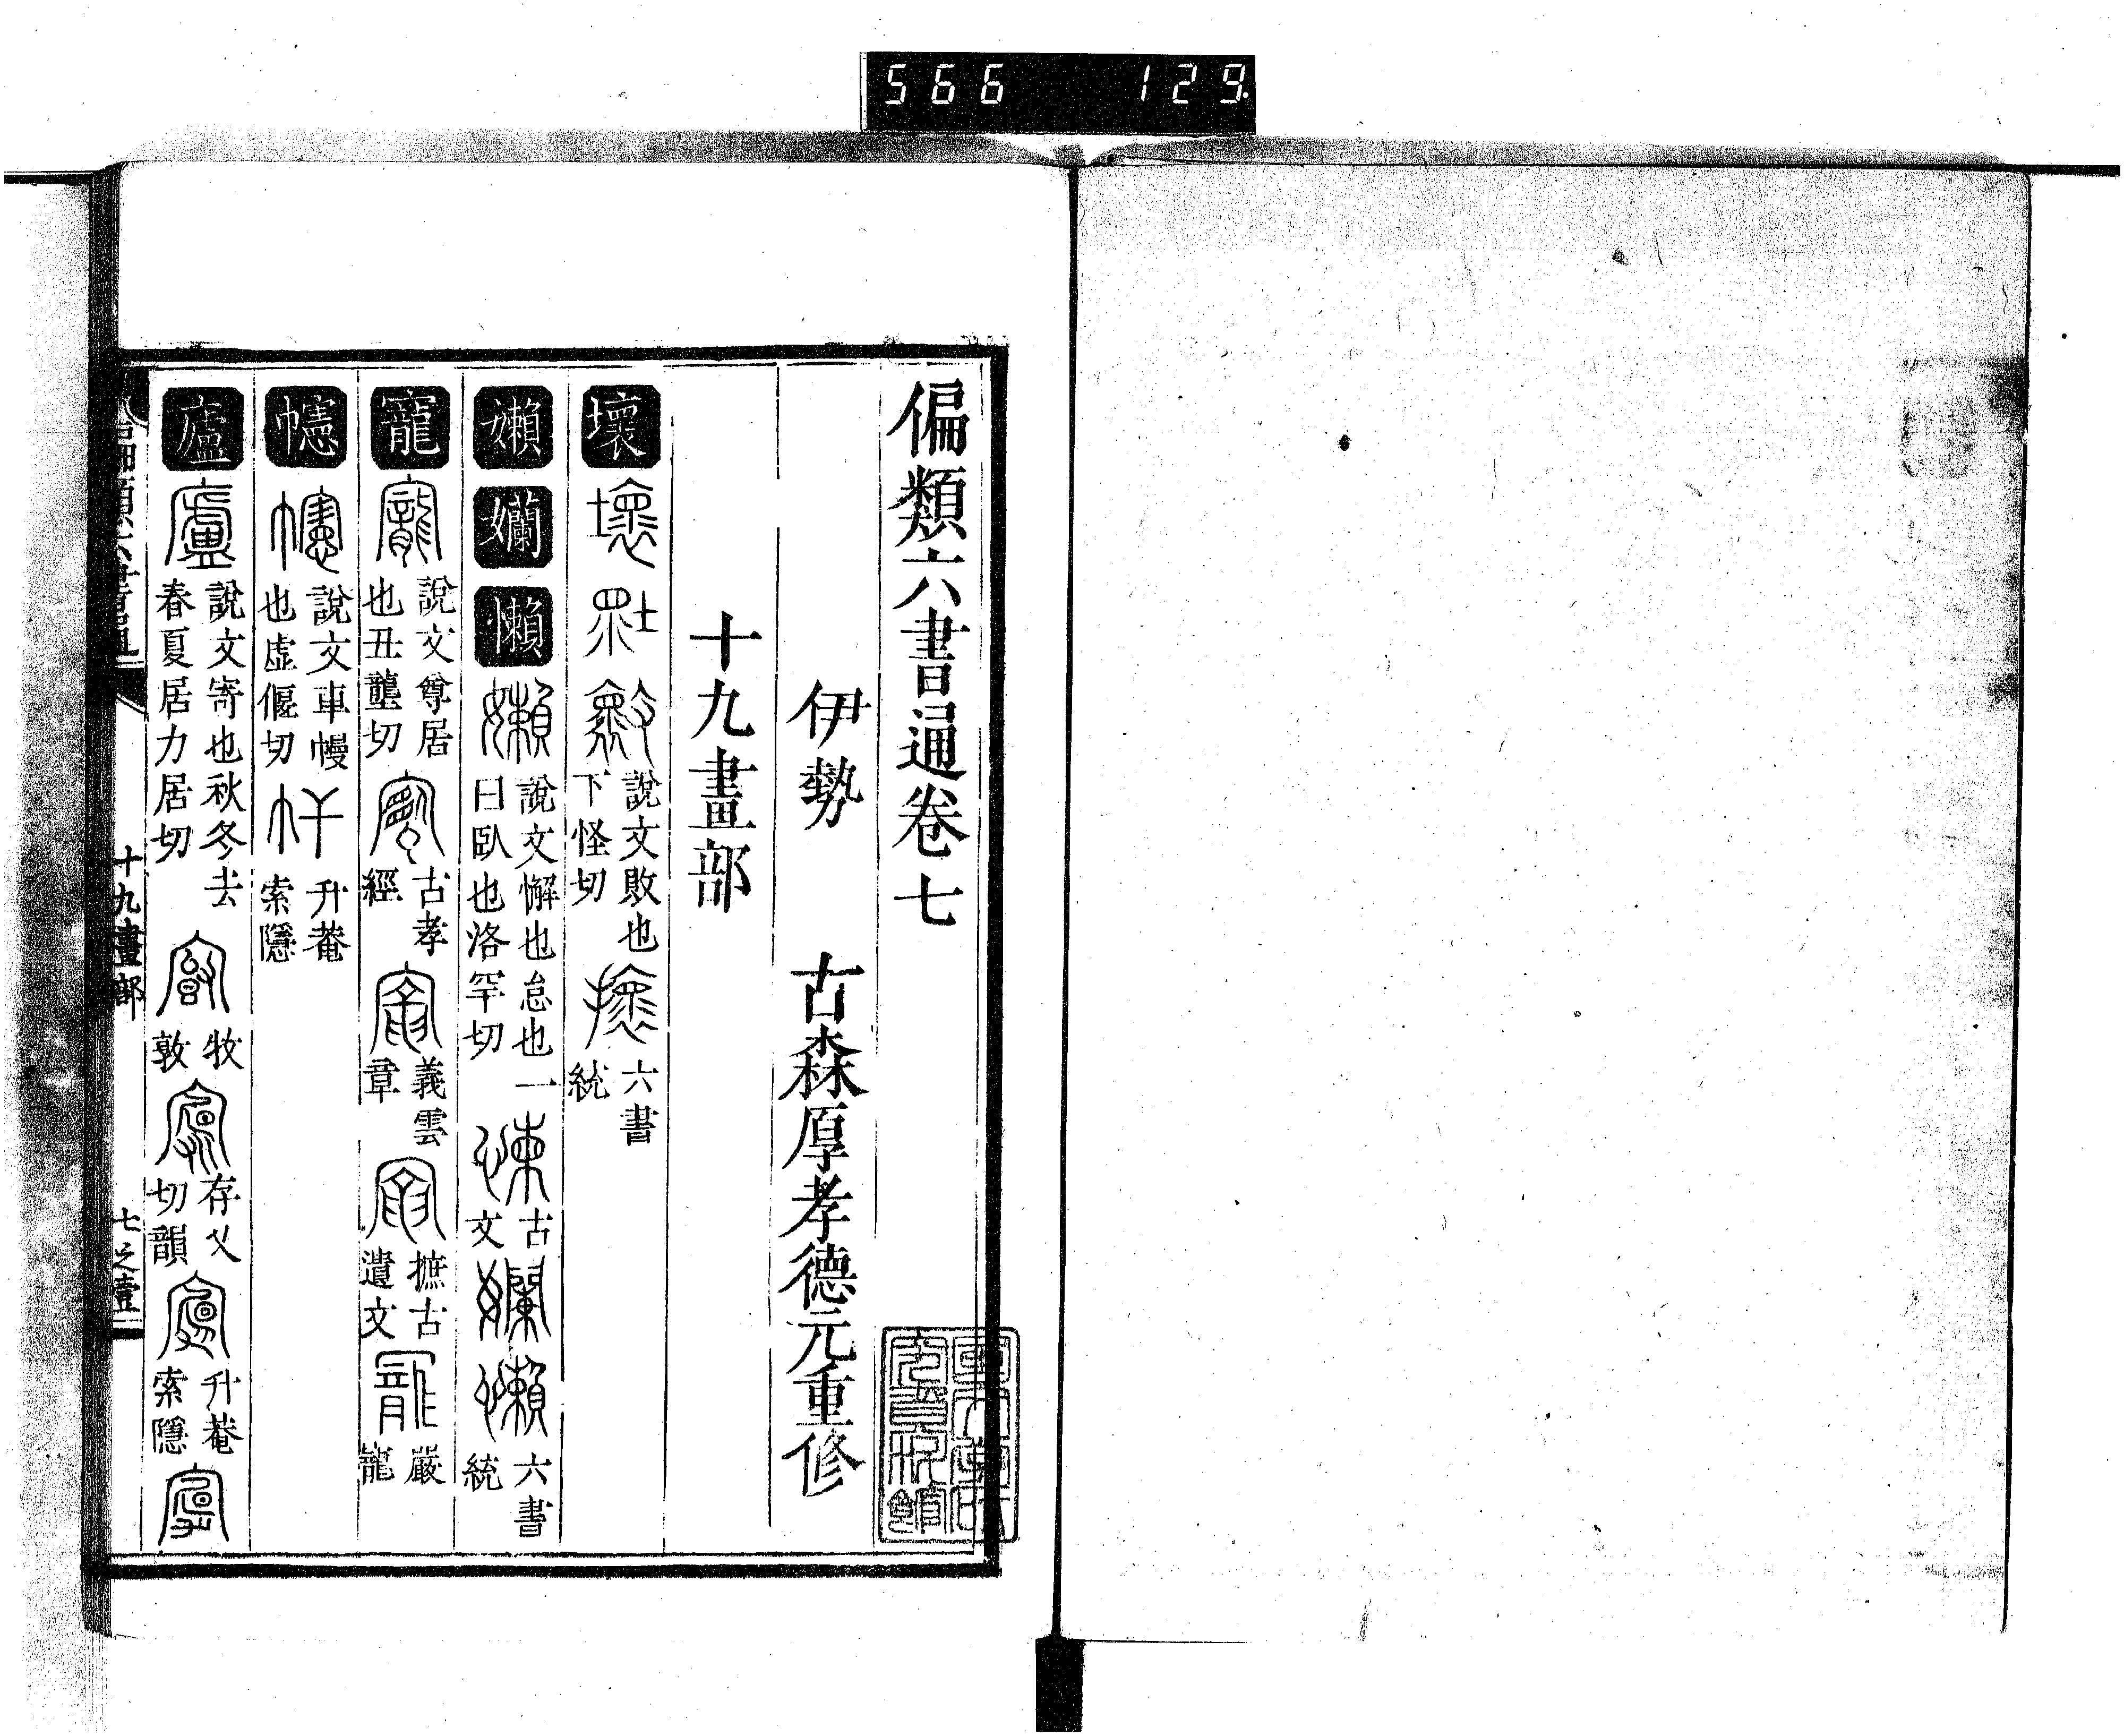 566 129
偏類六書通卷七
伊勢 古森厚孝德元重修
十九畫部
壞 說文敗也下怪切 六書統
嬾 孄 懶 說文懈也怠也一曰臥也洛罕切 古文 六書統
寵 說文尊居也丑壟切 古孝經 義雲章 摭古遺文 嚴寵
幰 說文車幔也虛偃切 升菴索隱
廬 說文寄也秋冬去春夏居力居切 牧敦 存乂切韻 升菴索隱
十九畫部 七之壹